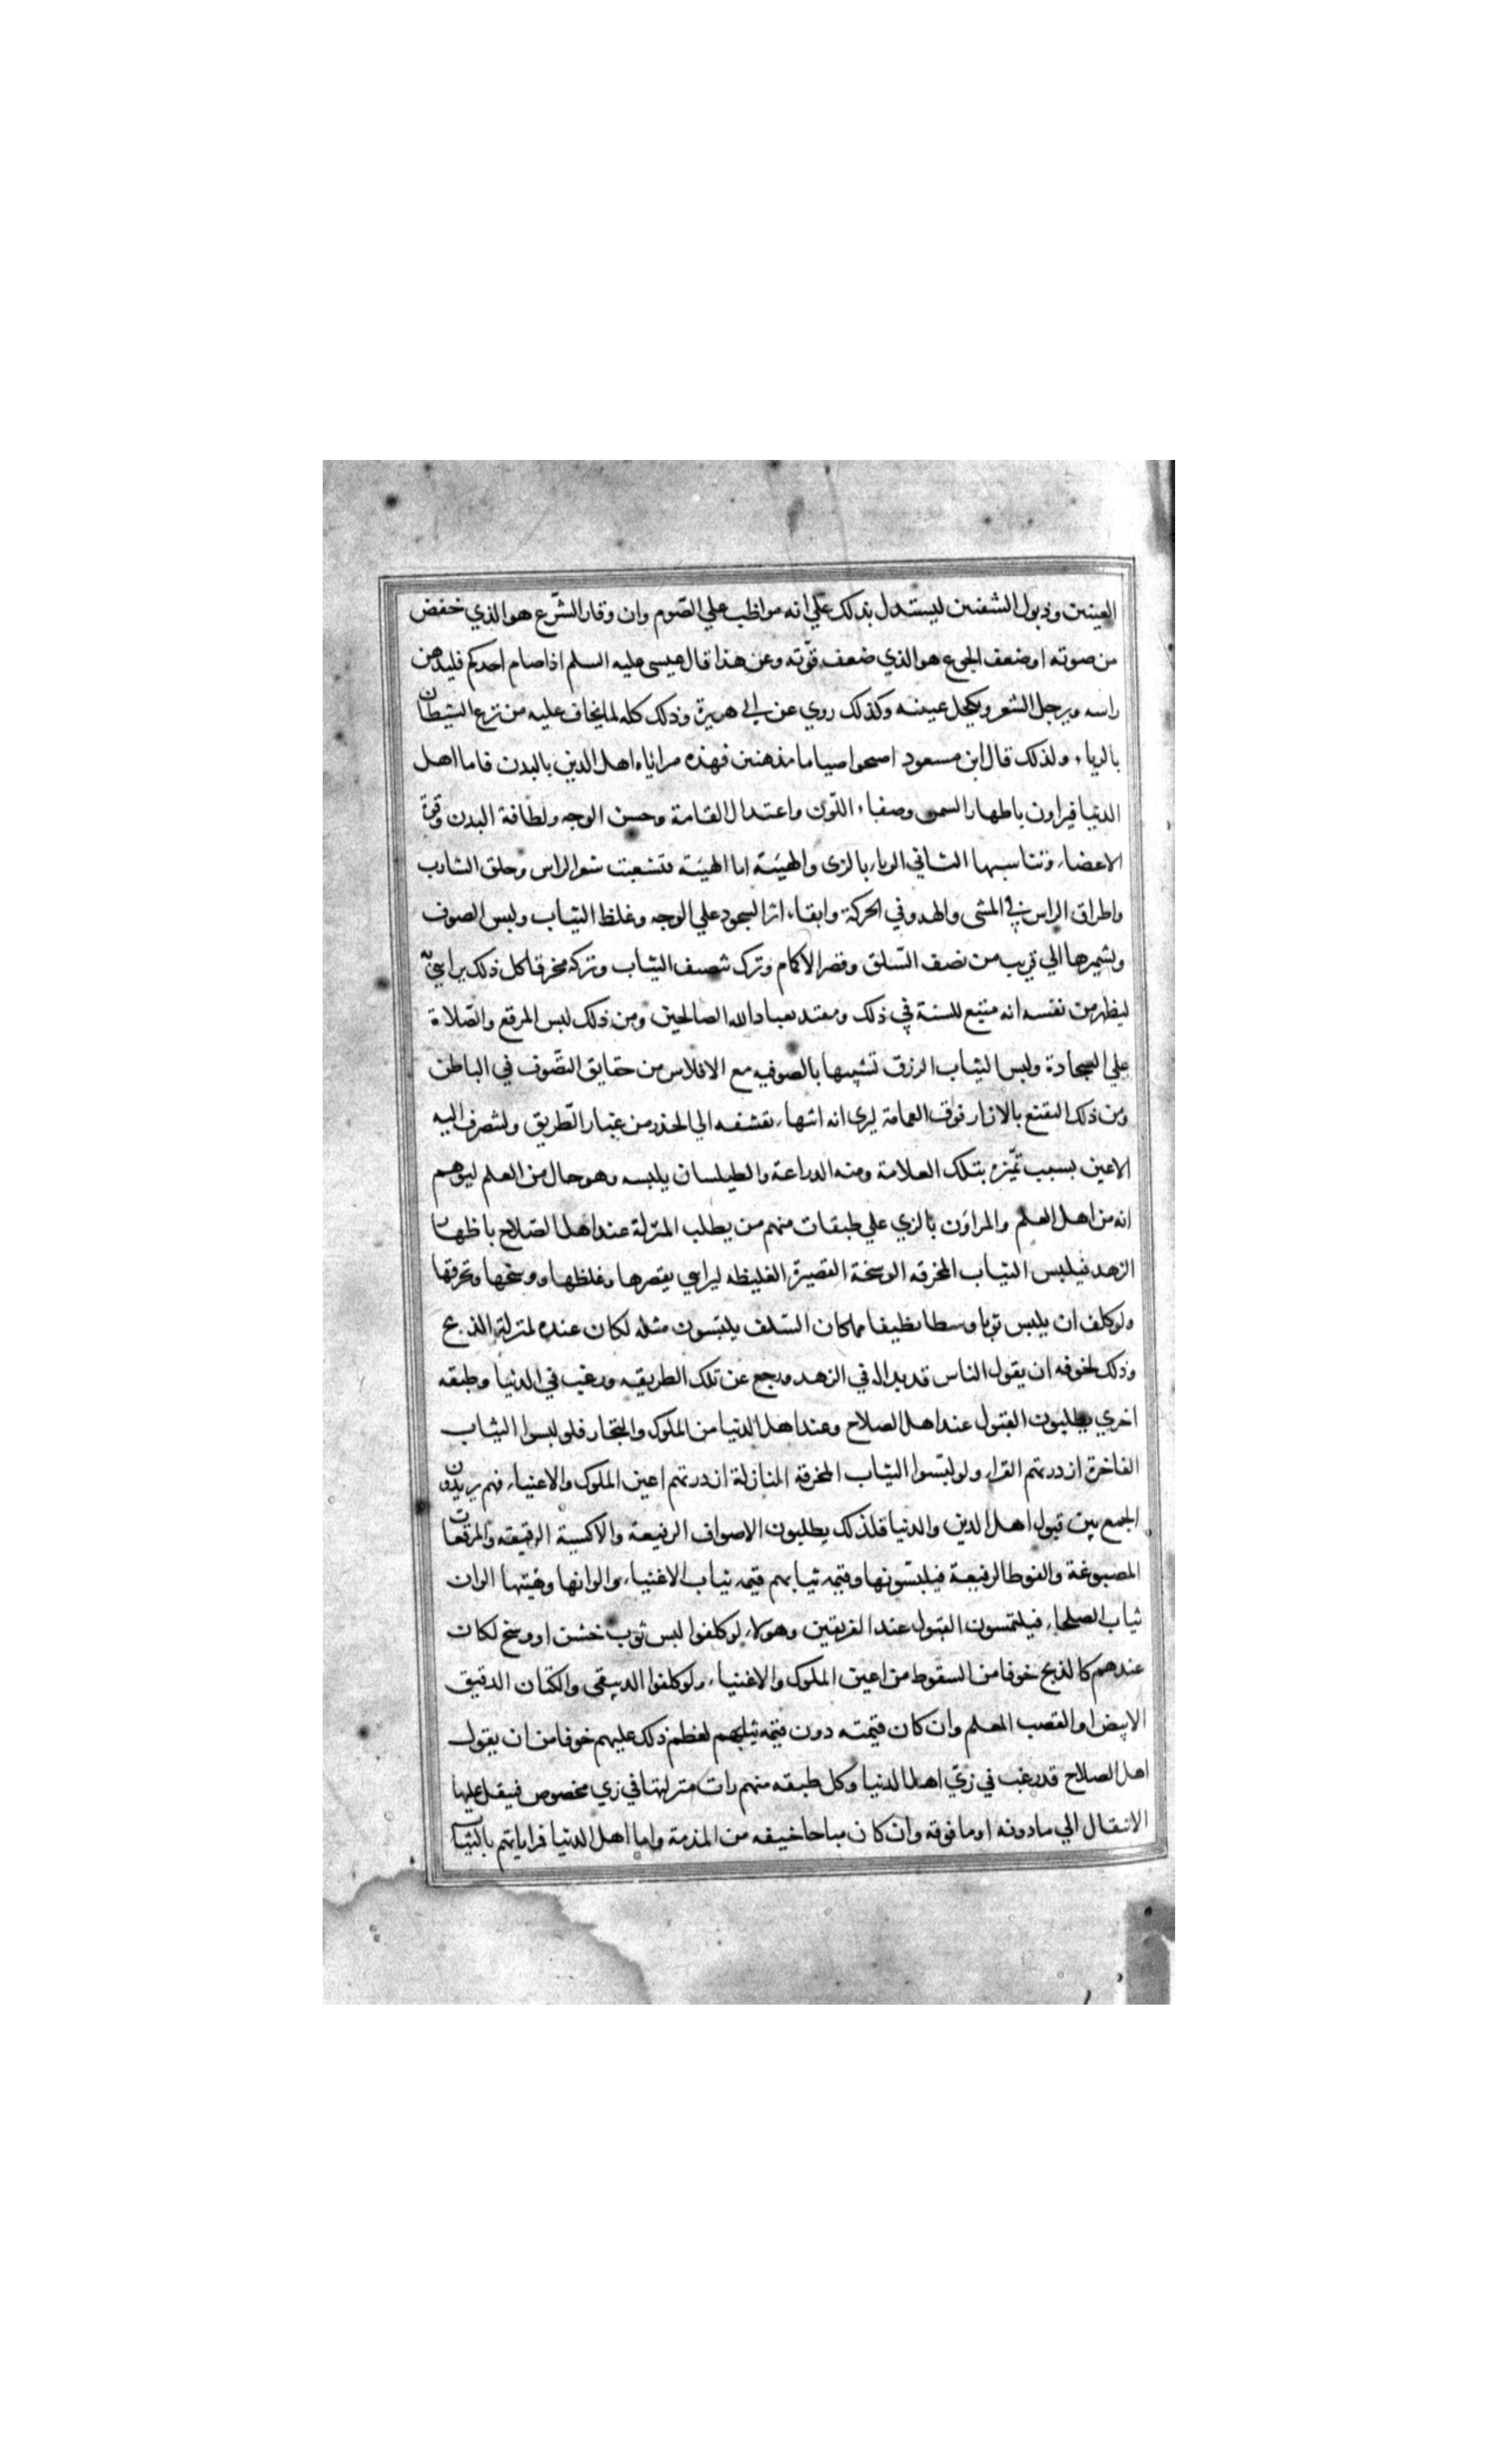 العينين وذبول الشفتين ليستدل بذلك علي انه مواظب علي الصّوم وان وقار الشّرع هو الذي خفض
من صوته او ضعف الجوع هو الذي ضعف قوّته وعن هذا قال عيسى عليه السلم اذا صام احدكم فليدهن
راسه ويرجل الشعر ويكحل عينيه وكذلك روي عن ابي هريرة وذلك كله لما يخاف عليه من نزع الشيطان
بالرياء ولذلك قال ابن مسعود اصبحوا صياما مدهنين فهذه مراياه اهل الدين بالبدن فاما اهل
الدنيا فيراون باظهار السمن وصفاء اللّون واعتدال القامة وحسن الوجه ولطافة البدن وقوة
الاعضاء وتناسبها الثاني الرياء بالزى والهيئة اما الهيئة فتشعيت شعر الراس وحلق الشارب
واطراق الراس في المشى والهدو في الحركة وابقاء اثر السجود علي الوجه وغلظ الثياب ولبس الصوف
وتشميرها الي قريب من نصف السّاق وقصر الاكام وترك تنصيف الثياب وتركه مخرقا كل ذلك يراي به
ليظهر من نفسه انه متبع للسنة في ذلك ومقتد بعباد الله الصالحين ومن ذلك لبس المرقع والصّلاة
علي السجادة ولبس الثياب الزرق تشبها بالصوفيه مع الافلاس من حقايق التصّوف في الباطن
ومن ذلك التقنع بالازار فوق العمامة ليرى انه انتهاء تقشفه الي الحذر من غبار الطّريق ولتصرف اليه
الاعين بسبب تميّزه بتلك العلامة ومنه الدراعة والطيلسان يلبسه وهو خال من العلم ليوهم
انه من اهل العلم والمراون بالزي علي طبقات منهم من يطلب المنزلة عند اهل الصلاح باظهار
الزهد فيلبس الثياب المخرقه الوسخة القصيرة الغليظه ليراي بقصرها وغلظها ووسخها وتخرقها
ولو كلف ان يلبس ثوبا وسطا نظيفا مما كان السّلف يلبسون مثله لكان عنده لمنزلة الذبح
وذلك لخوفه ان يقول الناس قد بدا له في الزهد ورجع عن تلك الطريقه ورغب في الدنيا وطبقه
اخري يطلبون القبول عند اهل الصلاح وعند اهل الدنيا من الملوك والتجار فلو لبسوا الثياب
الفاخرة ازدرتهم القراء ولو لبسوا الثياب المخرقة المنازلة ازدرتهم اعين الملوك والاغنياء فهم يريدون
الجمع بين قبول اهل الدين والدنيا فلذلك يطلبون الاصواف الرفيعة والاكسية الرقيقه والمرقعات
المصبوغة والفوط الرفيعة فيلبسونها وقيمه ثيابهم قيمه ثياب الاغنياء والوانها وهيئتها الوان
ثياب الصلحاء فيلتمسون القبول عند الفريقين وهولاء لو كلفوا لبس ثوب خشن او وسخ لكان
عندهم كالذبح خوفا من السقوط من اعين الملوك والاغنياء ولو كلفوا الدبيقى والكتان الدقيق
الابيض او القصب المعلم وان كان قيمته دون قيمه ثيابهم لعظم ذلك عليهم خوفا من ان يقول
اهل الصلاح قد رغب في زيّ اهل الدنيا وكل طبقه منهم رات منزلتها في زي مخصوص فيثقل عليها
الانتقال الي ما دونه او ما فوقه وان كان مباحا خيفه من المذمة واما اهل الدنيا فراياتهم بالثياب